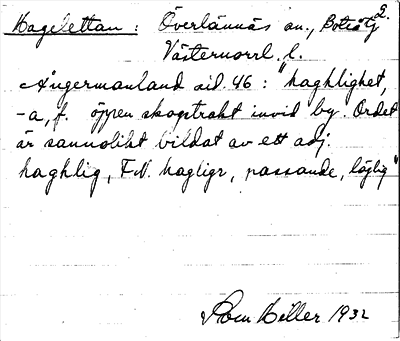 Hagelettan: Överlännäs sn., Boteå tg 2.
Västernorrl. l.
Ångermanland sid. 46: "haghlighet,
-a, f. öppen skogstrakt invid by. Ordet
är sannolikt bildat av ett adj.
haghlig, F.N. hagligr, passande, läglig"
Hiller 1932